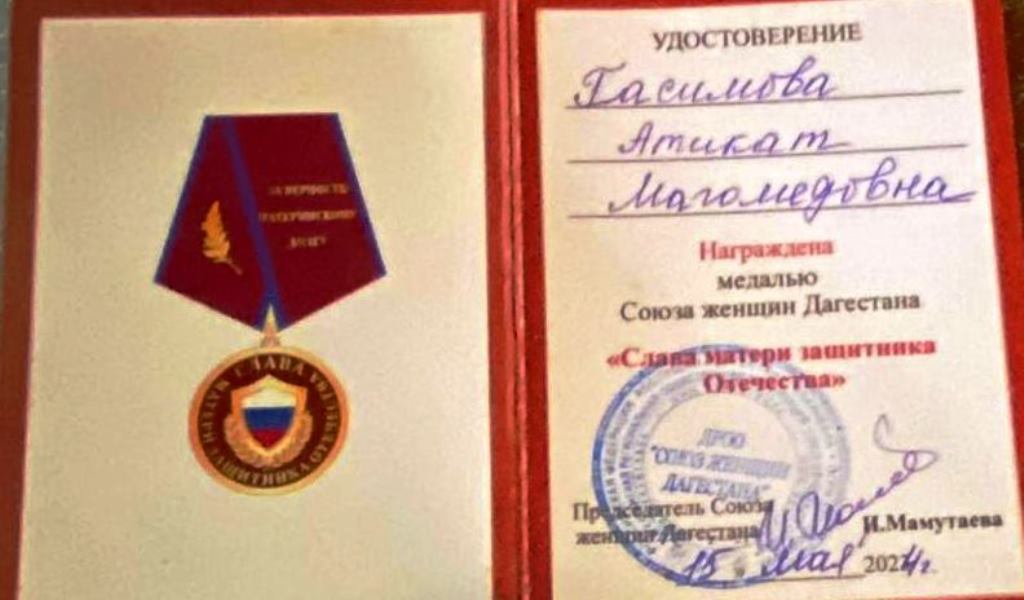 ЗА ВЕРНОСТЬ
МАТЕРИНСКОМУ
ДОЛГУ
СЛАВА МАТЕРИ ЗАЩИТНИКА ОТЕЧЕСТВА
УДОСТОВЕРЕНИЕ
Гасимова
Атикат
Магомедовна
Награждена
медалью
Союза женщин Дагестана
«Слава матери защитника
Отечества»
ДРОО
"СОЮЗ ЖЕНЩИН
ДАГЕСТАНА"
Председатель Союза
женщин Дагестана
И.Мамутаева
15 мая 2024г.